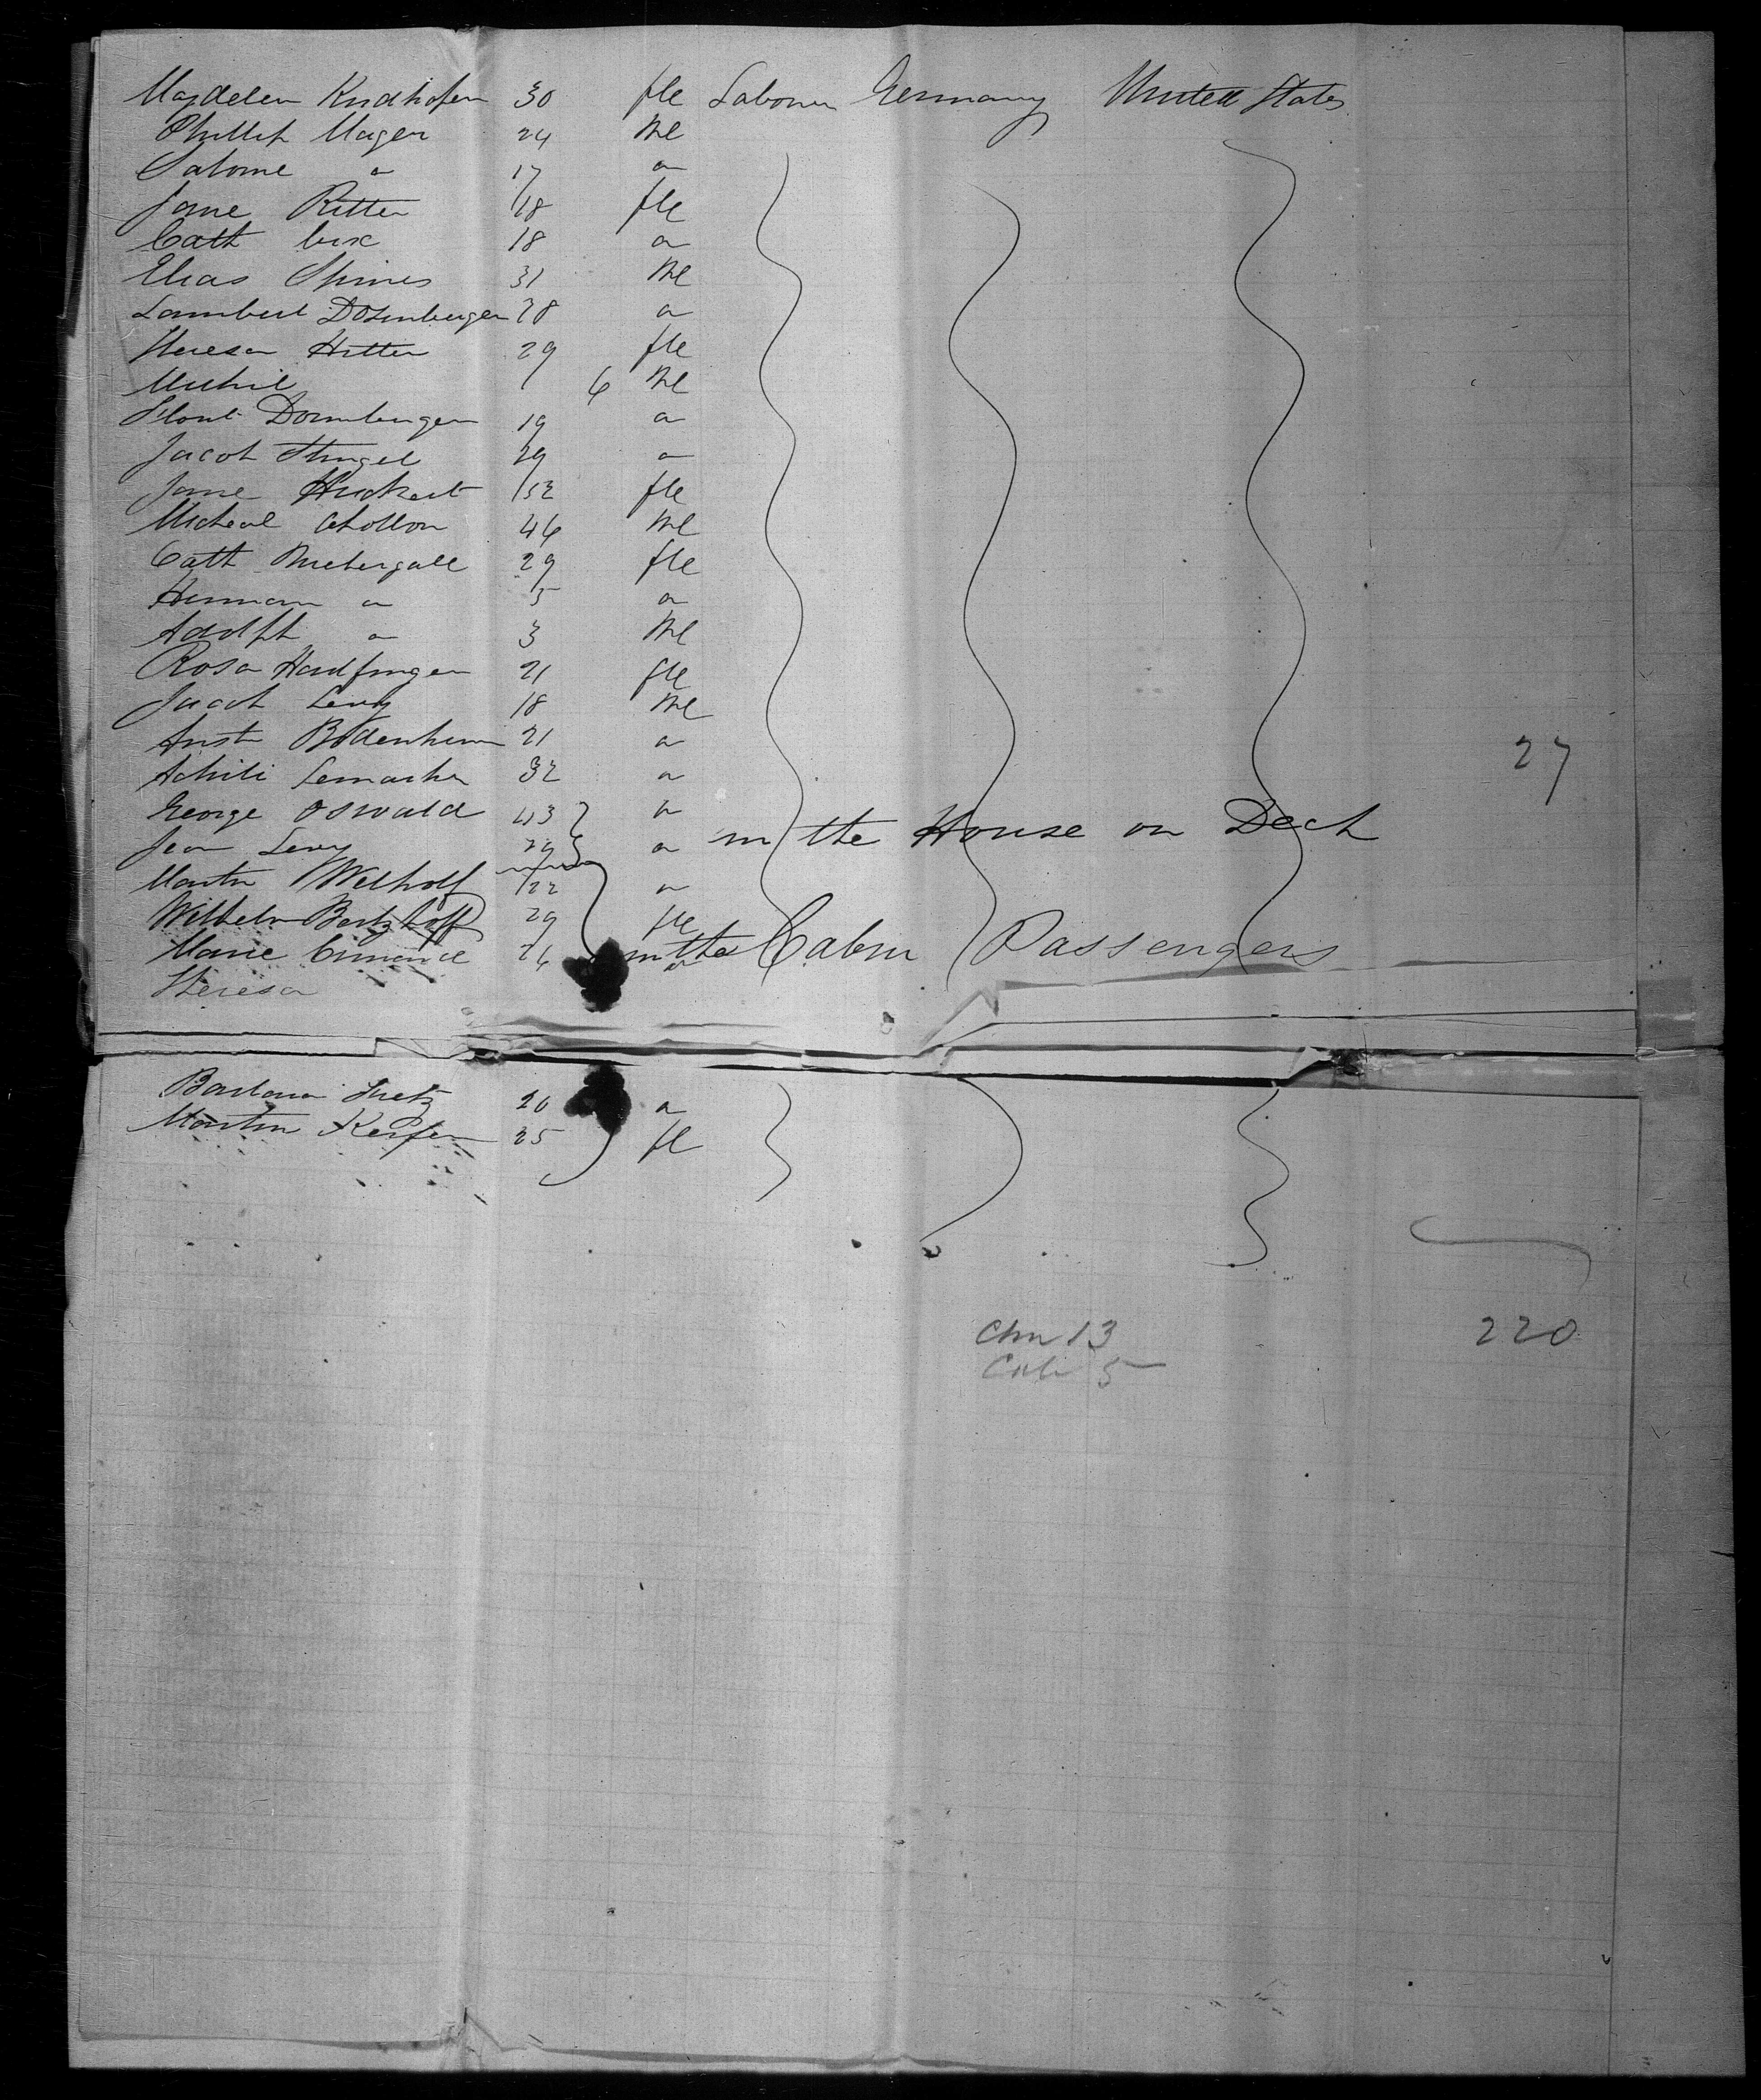 Magdelen Kridhofen 30 fle Labourer Germany United States
Phillip Mager 24 Me
Salome " 17 "
Jane Ritter 18 fle
Cath 18 "
Elias Spines 31 Me
Lambert Dosenberger 28 "
Theresa Hitter 29 fle
Michil 6 Me
Dornberger 19 "
Jacob Stengel 29 "
Jane Huckert 32 fle
Micheal 46 Me
Cath Niebergall 29 fle
Herman " 5 "
Adolph " 3 Me
Rosa Haulfinger 21 fle
Jacob Levy 18 Me
Bodenheim 21 "
Achili 32 " 27
George Oswald 43 "
Jean Levy 29 " in the House on Deck
Martin Welholf 22 "
Wilhelm Bertzhoff 29 fle
Marie 26 " in the Cabin Passengers
Theresa
Barbara 20 "
Martin Keifer 25 fl
Chn 13 220
Cab 5